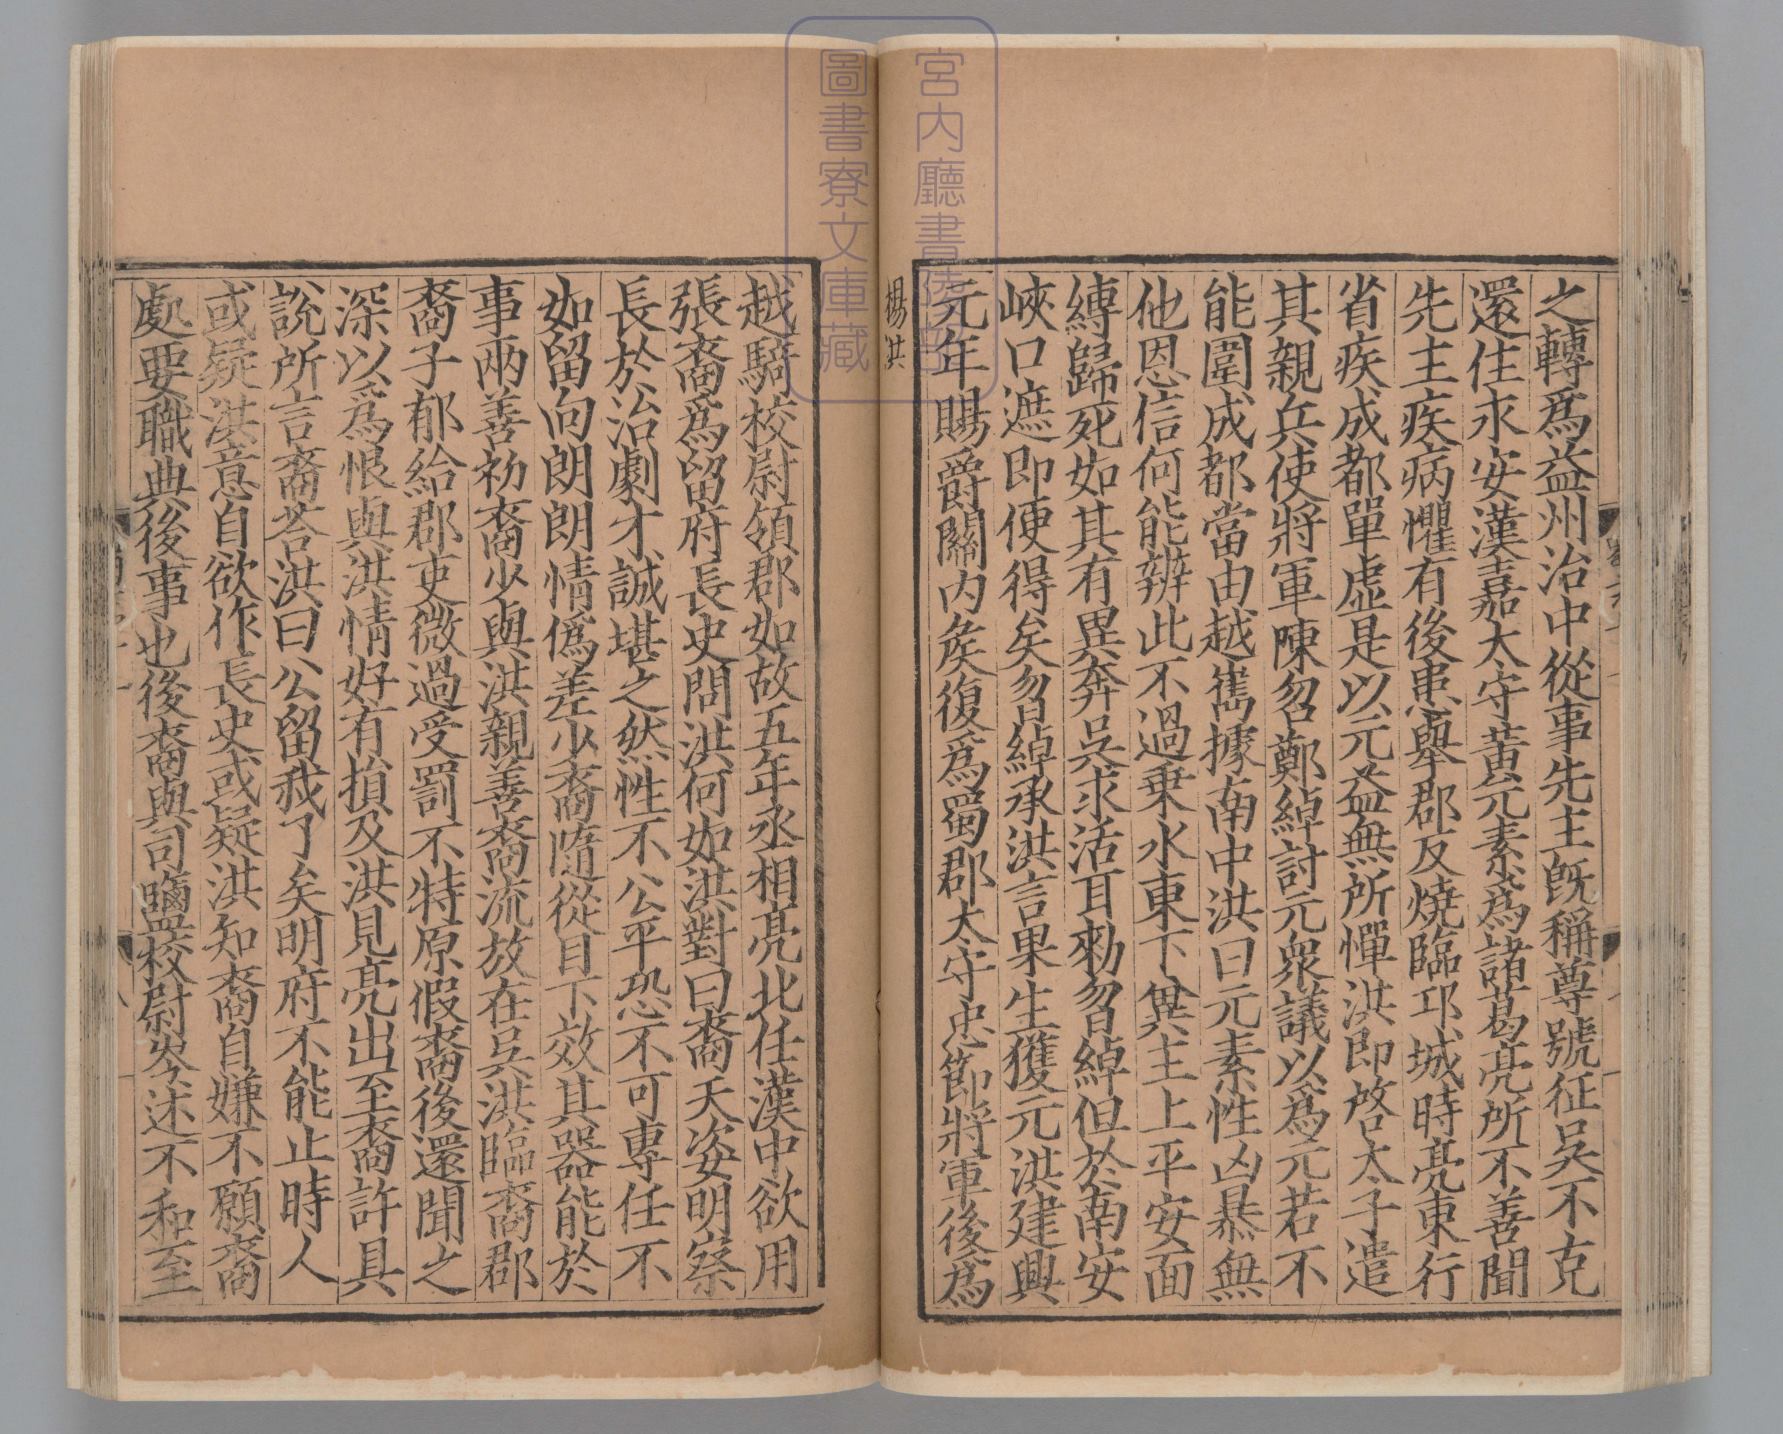 之轉爲益州治中從事先主旣稱尊號征吳不克
還住永安漢嘉太守黃元素爲諸葛亮所不善聞
先主疾病懼有後患舉郡反燒臨邛城時亮東行
省疾成都單虛是以元益無所憚洪即啓太子遣
其親兵使將軍陳曶鄭綽討元衆議以爲元若不
能圍成都當由越嶲據南中洪曰元素性凶暴無
他恩信何能辨此不過乗水東下兾主上平安面
縛歸死如其有異奔吳求活耳勑曶綽但於南安
峽口遮即便得矣曶綽承洪言果生獲元洪建興
元年賜爵關內矦復爲蜀郡太守忠節將軍後爲
楊洪
越騎校尉領郡如故五年丞相亮北住漢中欲用
張裔爲留府長史問洪何如洪對曰裔天姿明察
長於治劇才誠堪之然性不公平恐不可專任不
如留向朗朗情僞差少裔隨從目下效其器能於
事兩善初裔少與洪親善裔流放在吳洪臨裔郡
裔子郁給郡吏微過受罰不特原假裔後還聞之
深以爲恨與洪情好有損及洪見亮出至裔許具
說所言裔荅洪曰公留我了矣明府不能止時人
或疑洪意自欲作長史或疑洪知裔自嫌不願裔
處要職典後事也後裔與司鹽校尉岑述不和至
宮内廳書陵部
圖書寮文庫藏